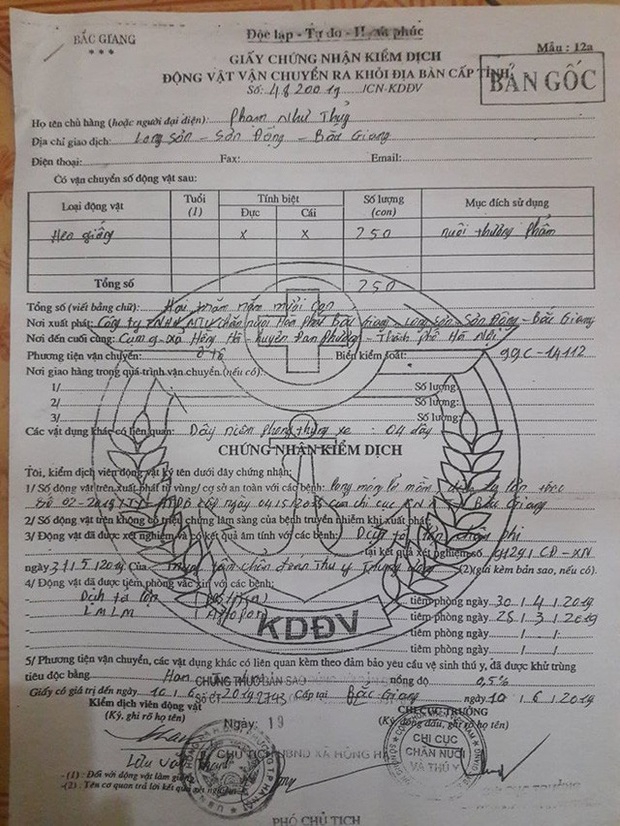 BẮC GIANG
Độc lập - Tự do - Hạnh phúc
* * *
Mẫu : 12a
GIẤY CHỨNG NHẬN KIỂM DỊCH
ĐỘNG VẬT VẬN CHUYỂN RA KHỎI ĐỊA BÀN CẤP TỈNH
BẢN GỐC
Số: /CN-KDĐV
Họ tên chủ hàng (hoặc người đại diện): Phạm Như Thuỷ
Địa chỉ giao dịch: Long Sơn - Sơn Động - Bắc Giang
Điện thoại: Fax: Email:
Có vận chuyển số động vật sau:
Loại động vật Tuổi (1) Tính biệt Số lượng (con) Mục đích sử dụng
Đực Cái
Heo giống X X 250 nuôi thương phẩm
Tổng số 250
Tổng số (viết bằng chữ): Hai trăm năm mươi con
Nơi xuất phát: Công ty TNHH MTV chăn nuôi Hòa Phát Bắc Giang - Long Sơn - Sơn Động - Bắc Giang
Nơi đến cuối cùng: Cụm 9 - xã Hồng Hà - huyện Đan Phượng - Thành phố Hà Nội
Phương tiện vận chuyển: ô tô Biển kiểm soát: 99C-14112
Nơi giao hàng trong quá trình vận chuyển (nếu có):
1/ Số lượng:
2/ Số lượng:
3/ Số lượng:
Các vật dụng khác có liên quan: Dây niêm phong thùng xe : 04 dây
CHỨNG NHẬN KIỂM DỊCH
Tôi, kiểm dịch viên động vật ký tên dưới đây chứng nhận:
1/ Số động vật trên xuất phát từ vùng/ cơ sở an toàn với các bệnh: Long móng lở mồm, dịch tả lợn
của chi cục Bắc Giang
2/ Số động vật trên không có triệu chứng lâm sàng của bệnh truyền nhiễm khi xuất phát;
3/ Động vật đã được xét nghiệm và có kết quả âm tính với các bệnh: Dịch tả lợn châu phi
tại kết quả xét nghiệm số CĐ-XN
ngày 31/5/2019 Của Trung tâm chẩn đoán Thú y Trung ương (2)(gửi kèm bản sao, nếu có).
4/ Động vật đã được tiêm phòng vắc xin với các bệnh:
Dịch tả lợn tiêm phòng ngày 30/4/2019
LMLM tiêm phòng ngày 25/3/2019
tiêm phòng ngày / /
tiêm phòng ngày / /
KDĐV
5/ Phương tiện vận chuyển, các vật dụng khác có liên quan kèm theo đảm bảo yêu cầu vệ sinh thú y, đã được khử trùng
tiêu độc bằng nồng độ 0,5%
CHỨNG THỰC BẢN SAO
Giấy có giá trị đến ngày 10/6/2019 Cấp tại Bắc Giang ngày 10/6/2019
Số CT
Kiểm dịch viên động vật
(Ký, ghi rõ họ tên)
CHI CỤC TRƯỞNG
(Ký, đóng dấu, ghi rõ họ tên)
Ngày: 19
CHỦ TỊCH UBND XÃ HỒNG HÀ
CHI CỤC
CHĂN NUÔI
VÀ THÚ Y
Lưu Văn
-(1) : Đối với động vật làm giống
-(2) : Tên cơ quan trả lời kết quả xét nghiệm
PHÓ CHỦ TỊCH